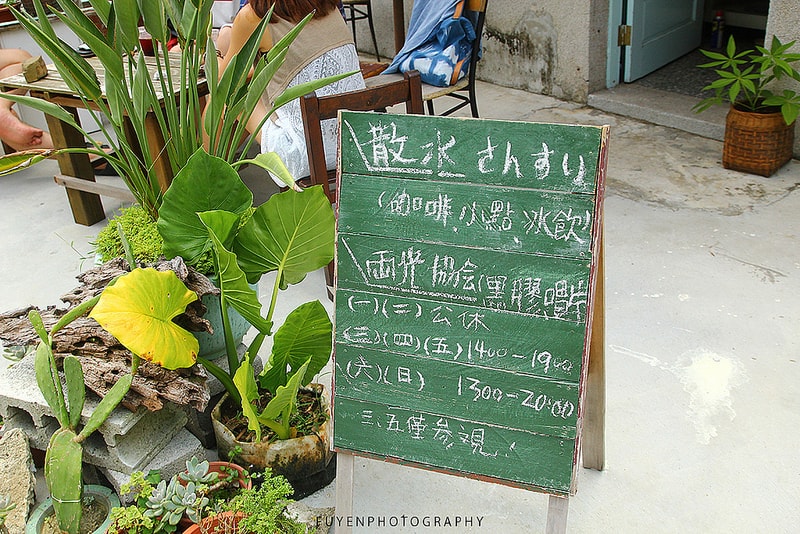 散水 さんすい
(咖啡、小點、冰飲)
雨豆協会(黑膠唱片
(一)(二)公休
(三)(四)(五)1400-1900
(六)(日) 1300-2000
三、五僅參觀
FUYENPHOTOGRAPHY